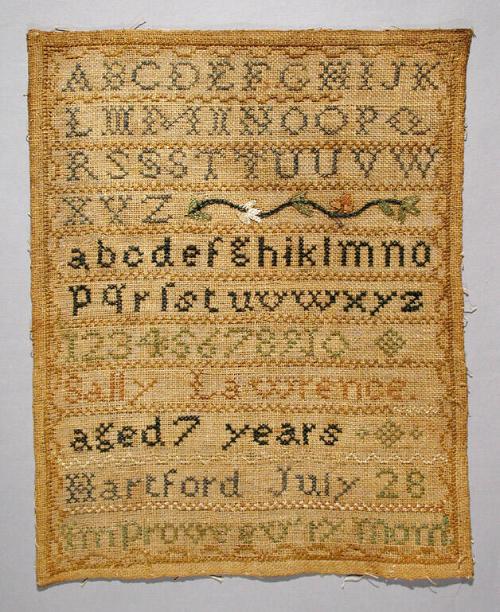 ABCDEFGHIJK
LMMNNOOPQ
RSSSTTUUVW
XYZ
abcdefghiklmno
pqrſstuvwxyz
12345678910
Sally Lawrence.
aged 7 years
Hartford July 28
Improve ev'ry mom